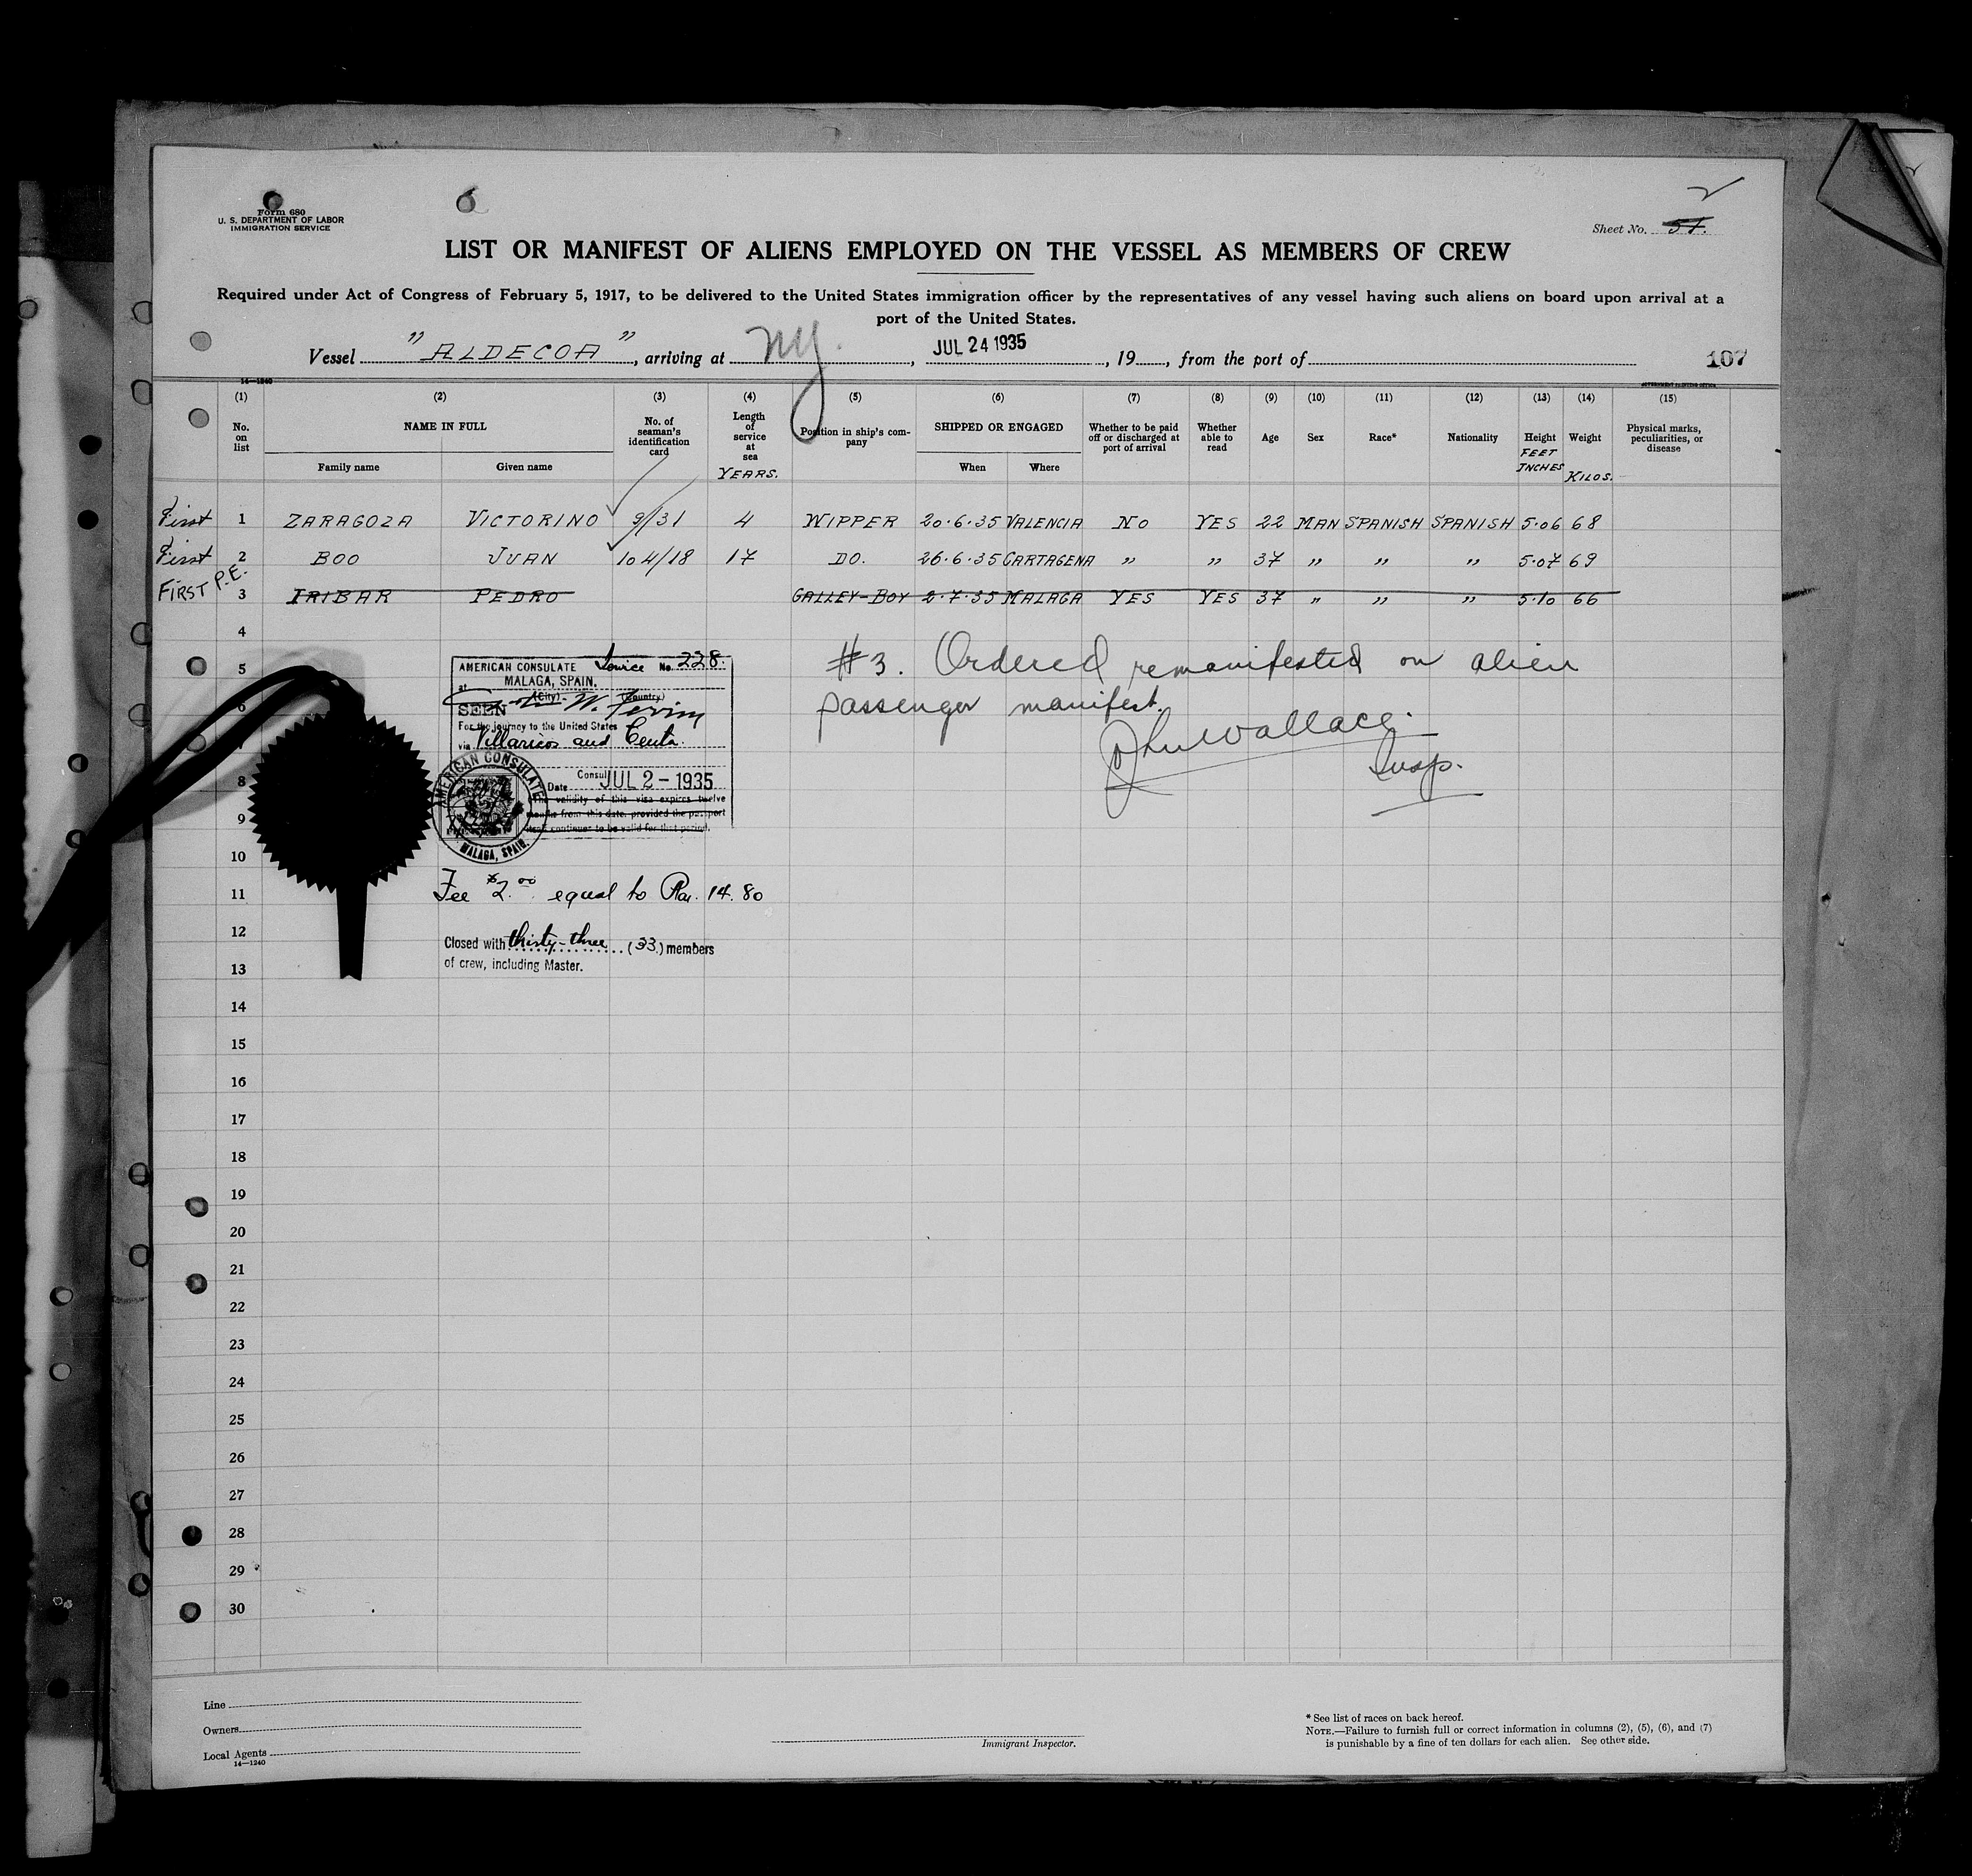 6
2
Form 680
U. S. DEPARTMENT OF LABOR
IMMIGRATION SERVICE
Sheet No. 51.
LIST OR MANIFEST OF ALIENS EMPLOYED ON THE VESSEL AS MEMBERS OF CREW
Required under Act of Congress of February 5, 1917, to be delivered to the United States immigration officer by the representatives of any vessel having such aliens on board upon arrival at a
port of the United States.
Vessel "ALDECOA", arriving at NY., JUL 24 1935, 19, from the port of
107
14—1240 GOVERNMENT PRINTING OFFICE
(1) (2) (3) (4) (5) (6) (7) (8) (9) (10) (11) (12) (13) (14) (15)
No. on list NAME IN FULL Family name Given name No. of seaman's identification card Length of service at sea YEARS. Position in ship's company SHIPPED OR ENGAGED When Where Whether to be paid off or discharged at port of arrival Whether able to read Age Sex Race* Nationality Height FEET INCHES Weight KILOS. Physical marks, peculiarities, or disease
First 1 ZARAGOZA VICTORINO 9/31 4 WIPPER 20.6.35 VALENCIA NO YES 22 MAN SPANISH SPANISH 5.06 68
First 2 BOO JUAN 104/18 17 DO. 26.6.35 CARTAGENA " " 37 " " " 5.07 69
FIRST P.E. 3 IRIBAR PEDRO GALLEY-BOY 2.7.35 MALAGA YES YES 37 " " " 5.10 66
4
#3. Ordered remanifested on alien
passenger manifest.
John Wallace.
Insp.
5
6
AMERICAN CONSULATE Service No. 228.
at MALAGA, SPAIN.
(City) (Country)
SEEN
For the journey to the United States
via Villaricos and Ceuta.
Consul
Date JUL 2 - 1935
The validity of this visa expires twelve
months from this date, provided the passport
itself continues to be valid for that period.
AMERICAN CONSULATE
MALAGA, SPAIN.
7
8
9
10
Fee $2.00 equal to Ptas. 14.80
11
12
Closed with thirty-three (33) members
of crew, including Master.
13
14
15
16
17
18
19
20
21
22
23
24
25
26
27
28
29
30
Line
Owners
Local Agents
14—1240
Immigrant Inspector.
* See list of races on back hereof.
NOTE.—Failure to furnish full or correct information in columns (2), (5), (6), and (7)
is punishable by a fine of ten dollars for each alien. See other side.